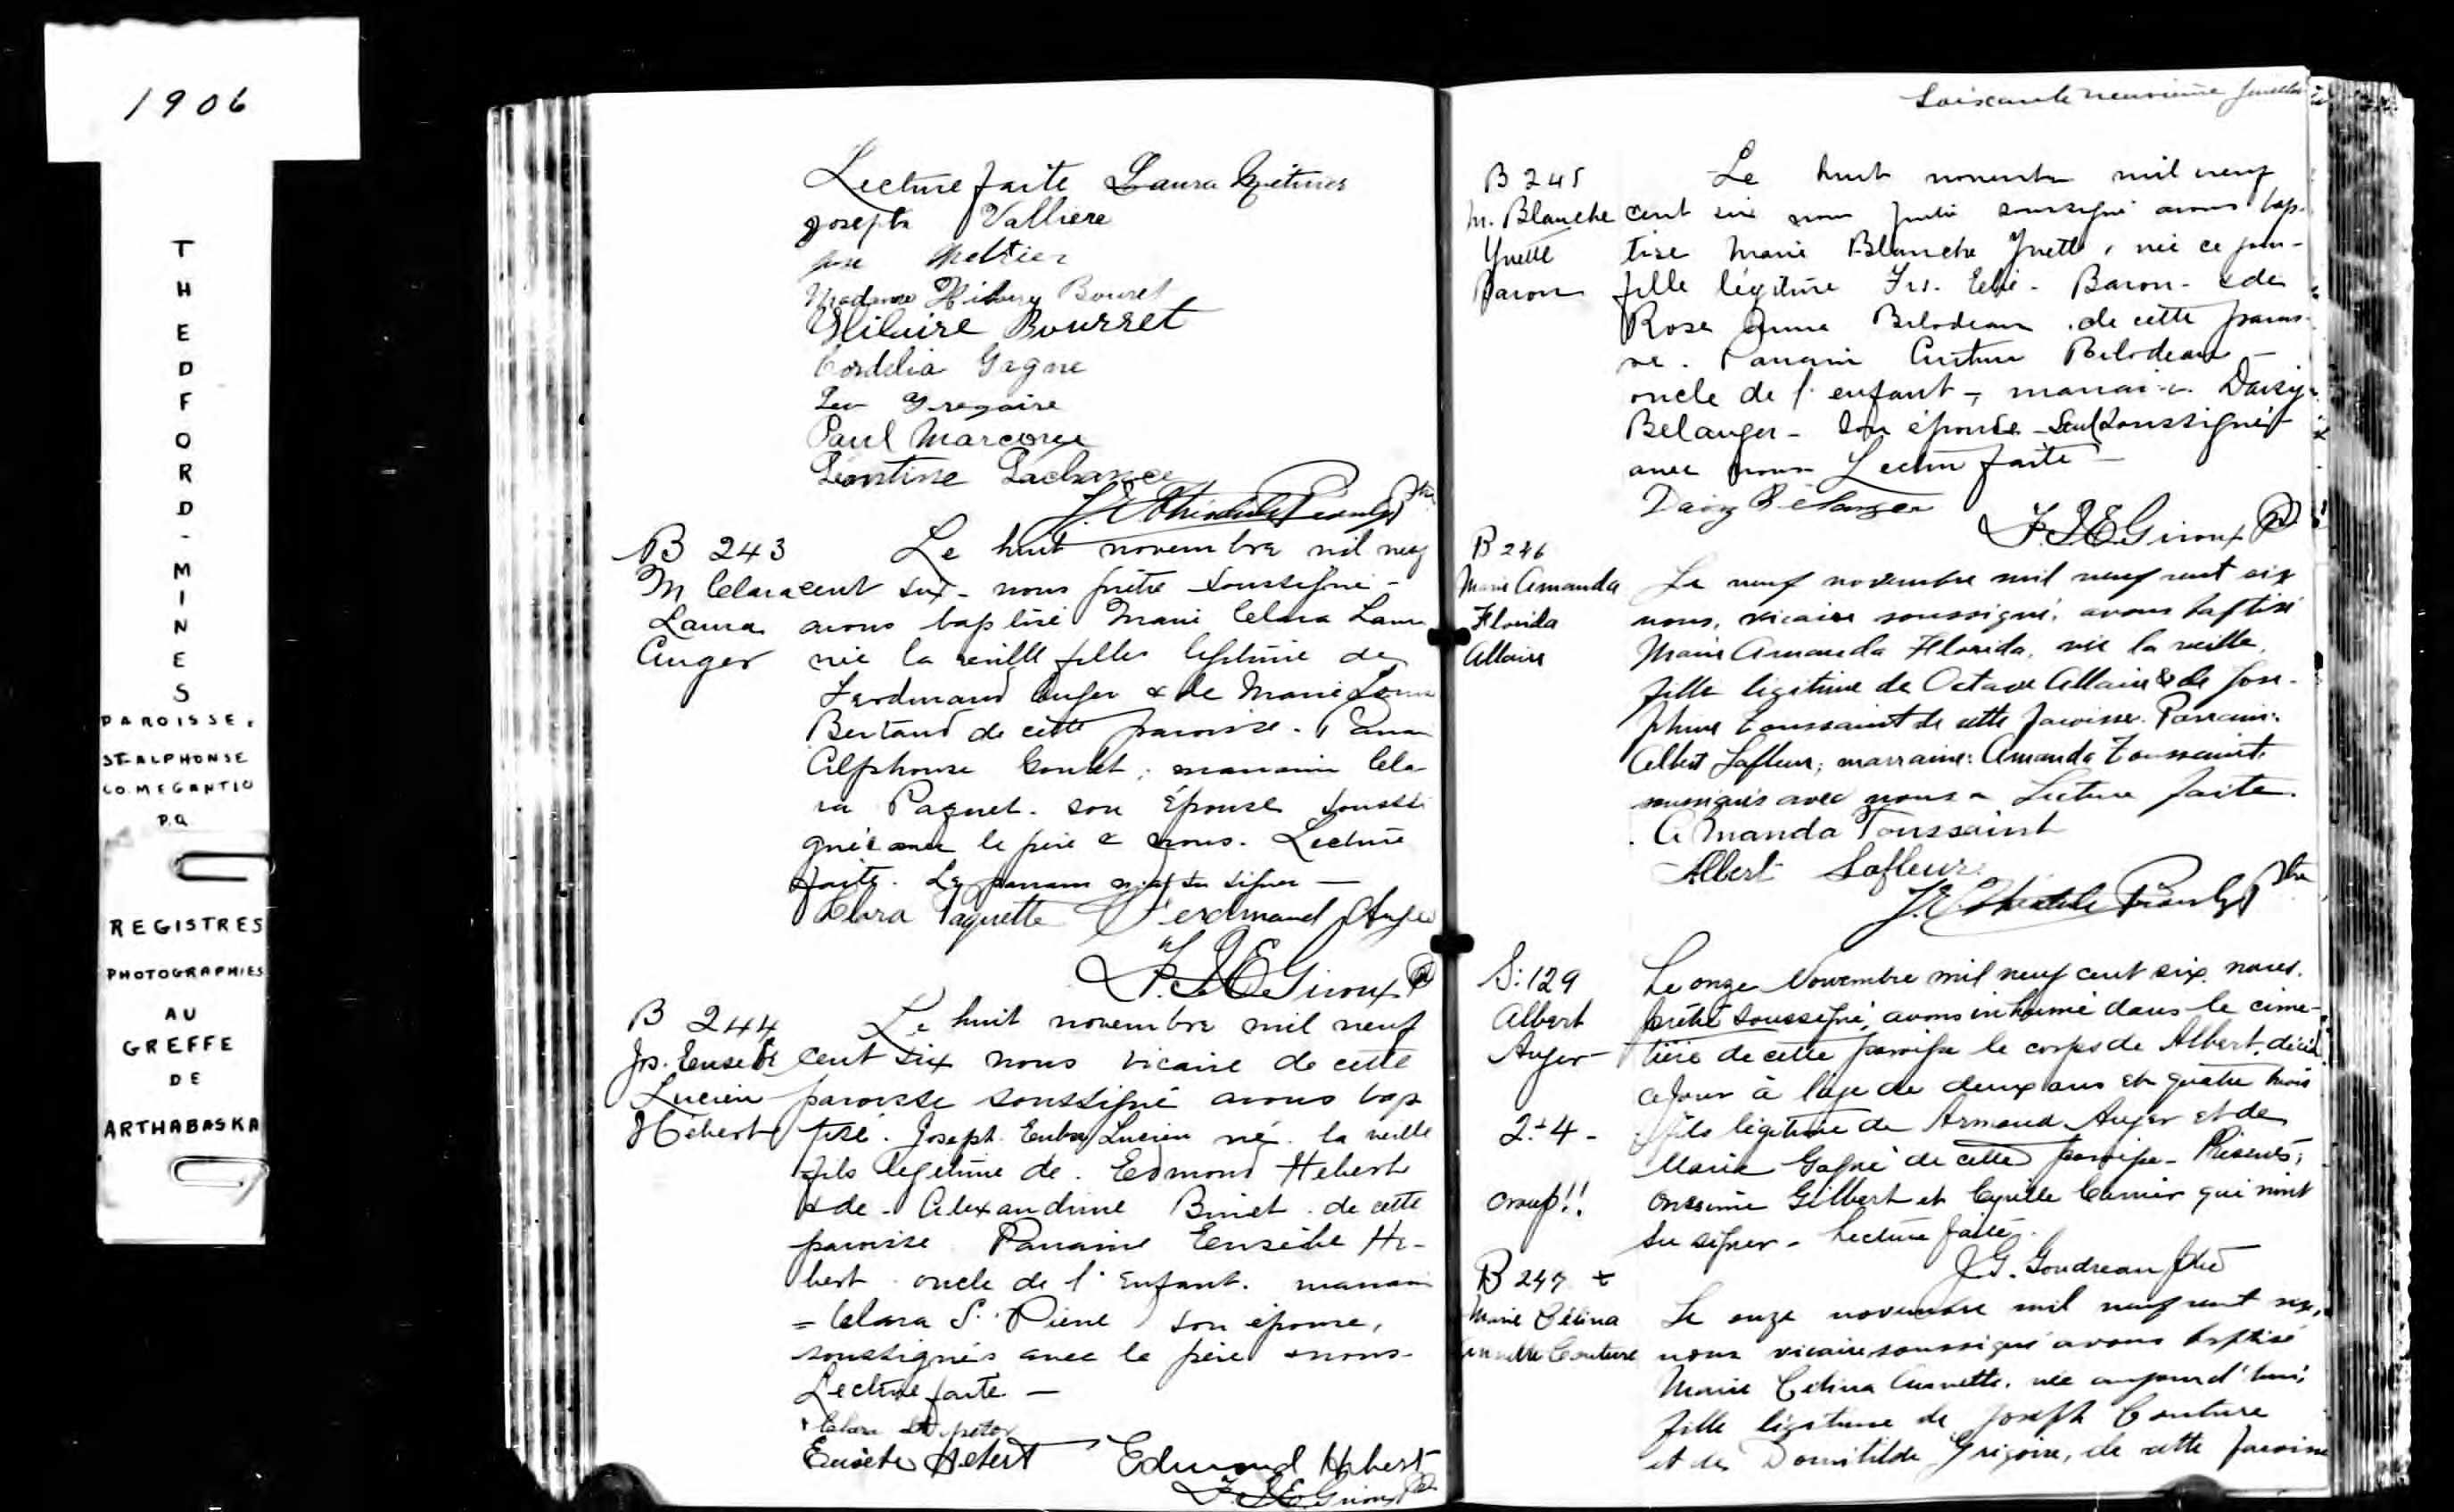 1906
THEDFORD-MINES
PAROISSE.
ST-ALPHONSE
CO. MEGANTIC
P.Q
REGISTRES
PHOTOGRAPHIES
AU
GREFFE
DE
ARTHABASKA
Lecture faite Laura
Joseph Vallière
Madame Hilaire Bourret
Hilaire Bourret
Cordelia Gagne
Leo Gregoire
Paul Marcoux
Léontine Lachance
B 243
M Clara
Laura
Auger
Le huit novembre mil neuf
cent six - nous prêtre soussigné -
avons baptisé Marie Clara Laura
née la veille fille légitime de
Ferdinand Auger & de Marie
Bertand de cette paroisse. -
Alphonse ; marraine Cla-
ra Paquet. son épouse soussi
gnée avec le père & nous. Lecture
faite. Le parrain n'a su signer —
Clara Paquette Ferdinand Auger
F.S.E. Giroux
B 244
Js. Eusèbe
Lucien
Hébert
Le huit novembre mil neuf
cent six nous vicaire de cette
paroisse soussigné avons bap
tisé. Joseph. Lucien né. la veille
fils légitime de. Edmond Hebert
& de - Alexandrine Binet. de cette
paroisse Parrain Eusèbe Hé-
bert oncle de l'enfant.
= Clara St. Pierre son épouse,
soussignés avec le père & nous -
Lecture faite —
Eusèbe Hebert Edmond Hebert
F.S.E. Giroux
Soixante neuvième feuillet
B 245
M. Blanche
Yvette
Baron
Le huit novembre mil neuf
cent six nous soussigné avons bap-
tisé Marie Blanche Yvette, née ce jour -
fille légitime Frs. Elie - Baron - & de
Rose Anna Bilodeau . de cette parois-
se. Parrain Arthur Bilodeau —
oncle de l'enfant -, marraine Daisy
Belanger - son épouse - soussignée
avec nous Lecture faite —
Daisy Bélanger
F.S.E. Giroux
B 246
Marie Amanda
Florida
Allaire
Le neuf novembre mil neuf cent six
nous, vicaire soussigné, avons baptisé
Marie Amanda Florida, née la veille,
fille légitime de Octave Allaire & de José-
phine Toussaint de cette paroisse. Parrain:
Albert Lafleur; marraine: Amanda Toussaint.
soussignés avec nous. Lecture faite.
Amanda Toussaint
Albert Lafleur
S: 129
Albert
Auger -
2 - 4 -
croup!!
Le onze Novembre mil neuf cent six. nous.
prêtre soussigné, avons inhumé dans le cime-
tière de cette paroisse le corps de Albert, décédé
ce jour à l'age de deux ans et quatre mois
fils légitime de Armand Auger et de
Maria Gagné de cette paroisse - Présents:
Onésime Gilbert et Cyrille qui n'ont
su signer - Lecture faite.
J.G. Goudreau ptre
B 247 +
Marie Célina
Annette Couture
Le onze novembre mil neuf cent six,
nous vicaire soussigné avons baptisé
Marie Célina Annette, née aujourd'hui,
fille légitime de Joseph Couture
et de Domitilde Grégoire, de cette paroisse